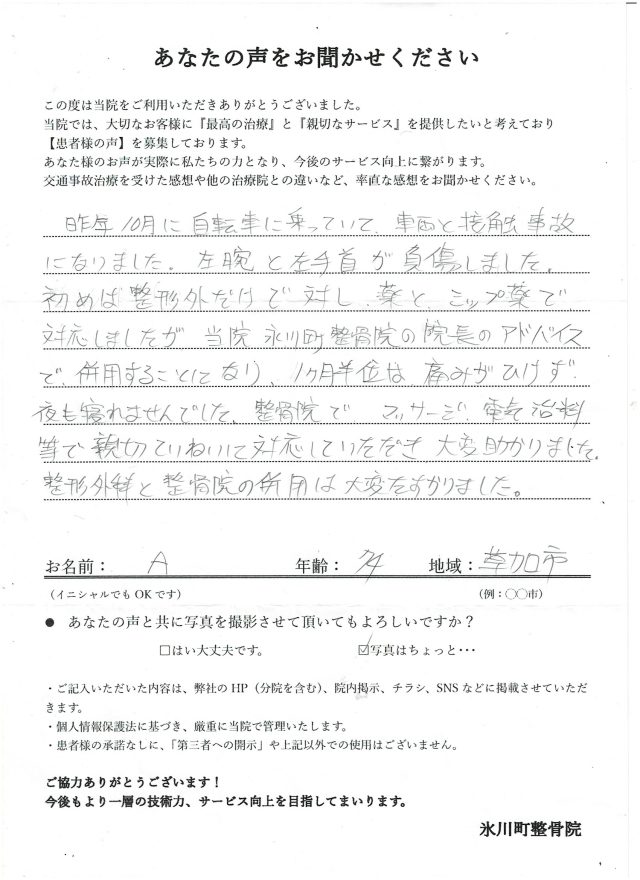 あなたの声をお聞かせください
この度は当院をご利用いただきありがとうございました。
当院では、大切なお客様に『最高の治療』と『親切なサービス』を提供したいと考えており
【患者様の声】を募集しております。
あなた様のお声が実際に私たちの力となり、今後のサービス向上に繋がります。
交通事故治療を受けた感想や他の治療院との違いなど、率直な感想をお聞かせください。
昨年10月に自転車に乗っていて、車両と接触事故
になりました。左腕と左手首が負傷しました。
初めは整形外だけで対し、薬と、ミップ薬で
対応しましたが 当院 氷川町整骨院の院長のアドバイス
で、併用することになり、1ケ月半位は 痛みがひけず、
夜も寝れませんでした、整骨院で マッサージ、電気治料
等で親切ていねいに対応していただき 大変助かりました。
整形外科と整骨院の併用は大変たすかりました。
お名前: A 年齢: 74 地域: 草加市
(イニシャルでもOKです) (例:○○市)
● あなたの声と共に写真を撮影させて頂いてもよろしいですか?
□はい大丈夫です。 ☑写真はちょっと・・・
・ご記入いただいた内容は、弊社のHP(分院を含む)、院内掲示、チラシ、SNSなどに掲載させていただ
きます。
・個人情報保護法に基づき、厳重に当院で管理いたします。
・患者様の承諾なしに、「第三者への開示」や上記以外での使用はございません。
ご協力ありがとうございます!
今後もより一層の技術力、サービス向上を目指してまいります。
氷川町整骨院